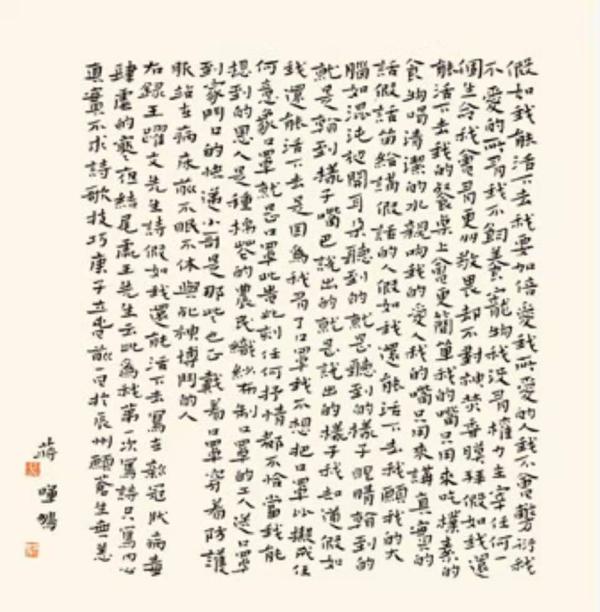 假如我能活下去我要加倍愛我所愛的人我不會敷衍我
不愛的所有我不飼養寵物我沒有權力主宰任何一
個生命我會有更多敬畏卻不對神焚香膜拜假如我還
能活下去我的餐桌上會更簡單我的嘴只用來吃樸素的
食物喝清潔的水親吻我的愛人我的嘴只用來講真實的
話假話留給講假話的人假如我還能活下去我願我的大
腦如混沌初開耳朵聽到的就是聽到的樣子眼睛看到的
就是看到樣子嘴巴說出的就是說出的樣子我知道假如
我還能活下去是因為我有了口罩我不想把口罩擬成任
何意象口罩就是口罩此此刻任何抒情都不恰當我能
想到的恩人是種棉花的農民織紗布制口罩的工人送口罩
到家門口的快遞小哥是那些也正戴着口罩穿着防護
服站在病床前不眠不休與死神搏鬥的人
右錄王躍文先生詩假如我還能活下去寫在新冠狀病毒
肆虐的寒夜結尾處王先生云此為我第一次寫詩只寫內心
真實不求詩歌技巧庚子立春前一日於辰州願蒼生無恙
蔣